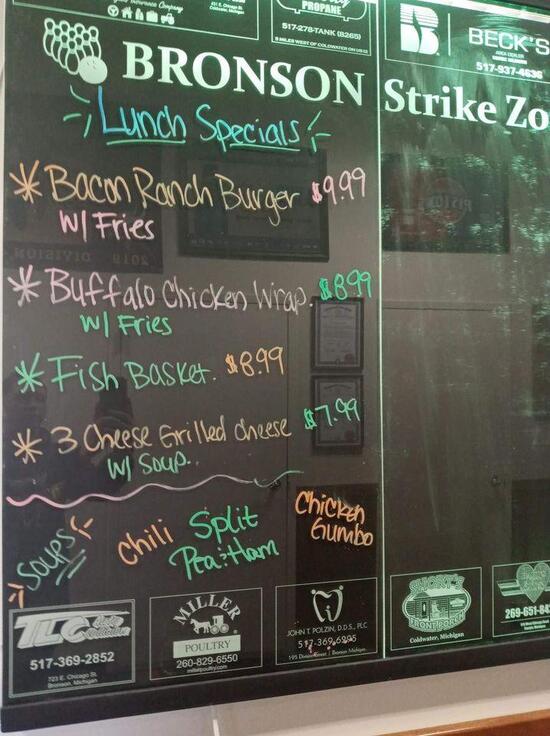 PROPANE
517-278-TANK (8265)
5 MILES WEST OF COLDWATER ON US12
BECK'S
517-937-4636
BRONSON
Strike Zo
Lunch Specials
* Bacon Ranch Burger $9.99
W/ Fries
* Buffalo Chicken Wrap. $8.99
W/ Fries
* Fish Basket. $8.99
* 3 Cheese Grilled cheese $7.99
W/ Soup.
Soups
Chili
Split
Pea & Ham
Chicken
Gumbo
TLC
517-369-2852
723 E. Chicago St.
Bronson, Michigan
MILLER
POULTRY
260-829-6550
millerpoultry.com
JOHN T. POLZIN, D.D.S., PLC
517-369-6995
Bronson Michigan
SHORT'S
FRONT PORCH
Coldwater, Michigan
269-651-84